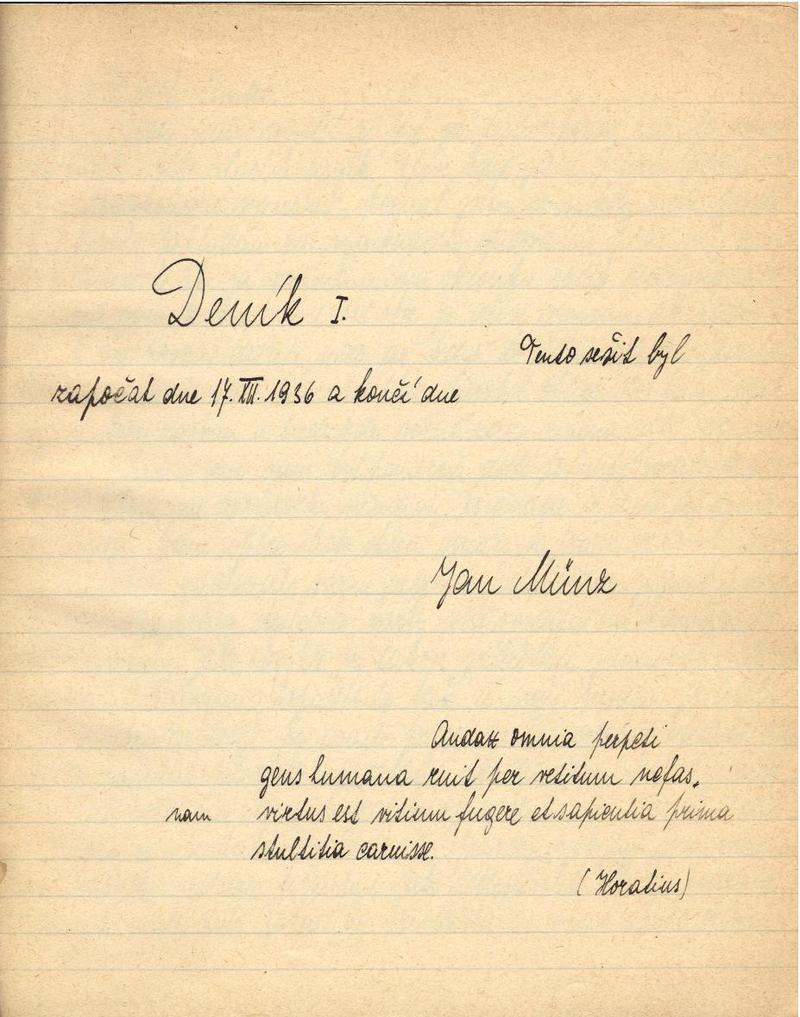 Deník I.
Tento sešit byl
započat dne 17. XII. 1936 a končí dne
Jan Münz
Audax omnia perpeti
gens humana ruit per vetitum nefas,
nam virtus est vitium fugere et sapientia prima
stultitia caruisse.
(Horatius)